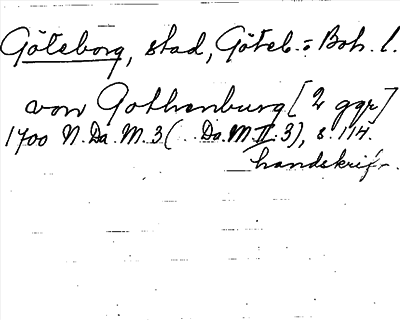 Göteborg, stad, Göteb. o Boh. l.
von Gothenburg [2 ggr]
1700 N. Da. M. 3 ( Da. M. II. 3), s. 114.
handskrift.